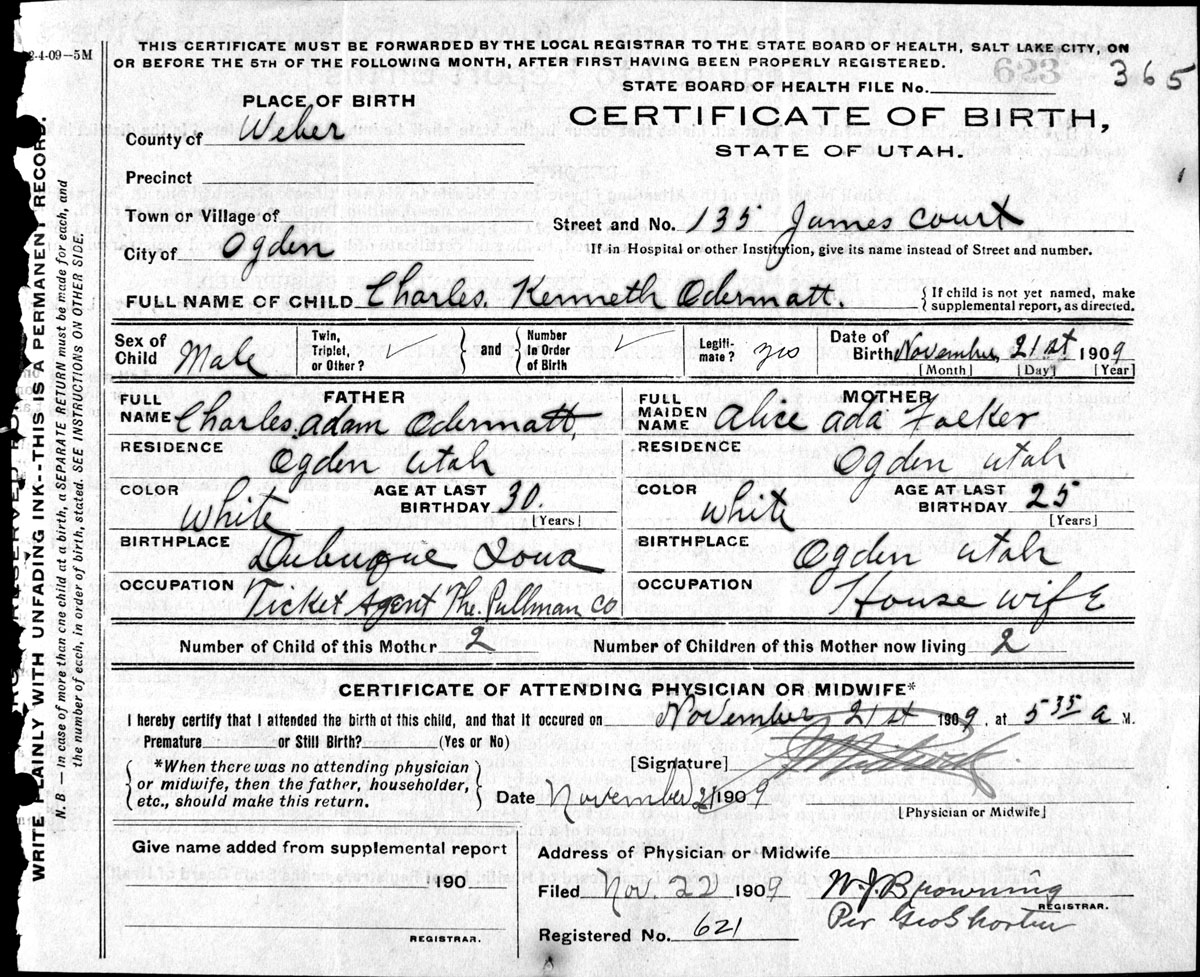 2-4-09—5M
THIS CERTIFICATE MUST BE FORWARDED BY THE LOCAL REGISTRAR TO THE STATE BOARD OF HEALTH, SALT LAKE CITY, ON
OR BEFORE THE 5TH OF THE FOLLOWING MONTH, AFTER FIRST HAVING BEEN PROPERLY REGISTERED.
623
365
STATE BOARD OF HEALTH FILE No.
PLACE OF BIRTH
CERTIFICATE OF BIRTH,
STATE OF UTAH.
County of Weber
Precinct
Town or Village of
Street and No. 135 James Court
City of Ogden
If in Hospital or other Institution, give its name instead of Street and number.
FULL NAME OF CHILD Charles. Kenneth Odermatt.
{ If child is not yet named, make
supplemental report, as directed.
Sex of Child Male
Twin, Triplet, or Other? ✓ } and { Number In Order of Birth ✓
Legitimate? yes
Date of Birth November, 21st 1909
[Month] [Day] [Year]
FATHER
FULL NAME Charles. Adam Odermatt,
RESIDENCE Ogden Utah
COLOR White AGE AT LAST BIRTHDAY 30. [Years]
BIRTHPLACE Dubuque Iowa
OCCUPATION Ticket Agent The. Pullman Co
MOTHER
FULL MAIDEN NAME Alice Ada Folker
RESIDENCE Ogden Utah
COLOR White AGE AT LAST BIRTHDAY 25 [Years]
BIRTHPLACE Ogden Utah
OCCUPATION House wife
Number of Child of this Mother 2 Number of Children of this Mother now living 2
CERTIFICATE OF ATTENDING PHYSICIAN OR MIDWIFE*
I hereby certify that I attended the birth of this child, and that it occured on November 21st 1909, at 5 35 a M.
Premature or Still Birth? (Yes or No)
[Signature]
{ *When there was no attending physician
or midwife, then the father, householder,
etc., should make this return. }
Date November 21 1909
[Physician or Midwife]
Give name added from supplemental report
190
REGISTRAR.
Address of Physician or Midwife
Filed Nov. 22 1909 W. J. Browning
REGISTRAR.
Per Geo Shorten
Registered No. 621
WRITE PLAINLY WITH UNFADING INK--THIS IS A PERMANENT RECORD.
N. B — In case of more than one child at a birth, a SEPARATE RETURN must be made for each, and
the number of each, in order of birth, stated. SEE INSTRUCTIONS ON OTHER SIDE.